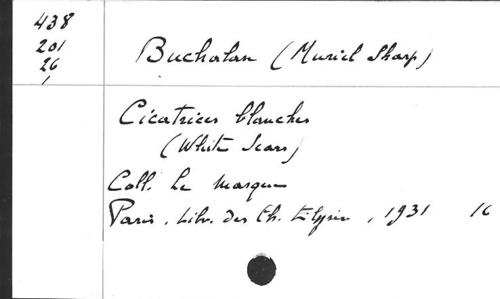 438
201
26
1
Buchalan (Muriel Sharp)
Cicatrices blanches
(White Scars)
Coll. Le Masque
Paris. Libr. des Ch. Elysées, 1931 16